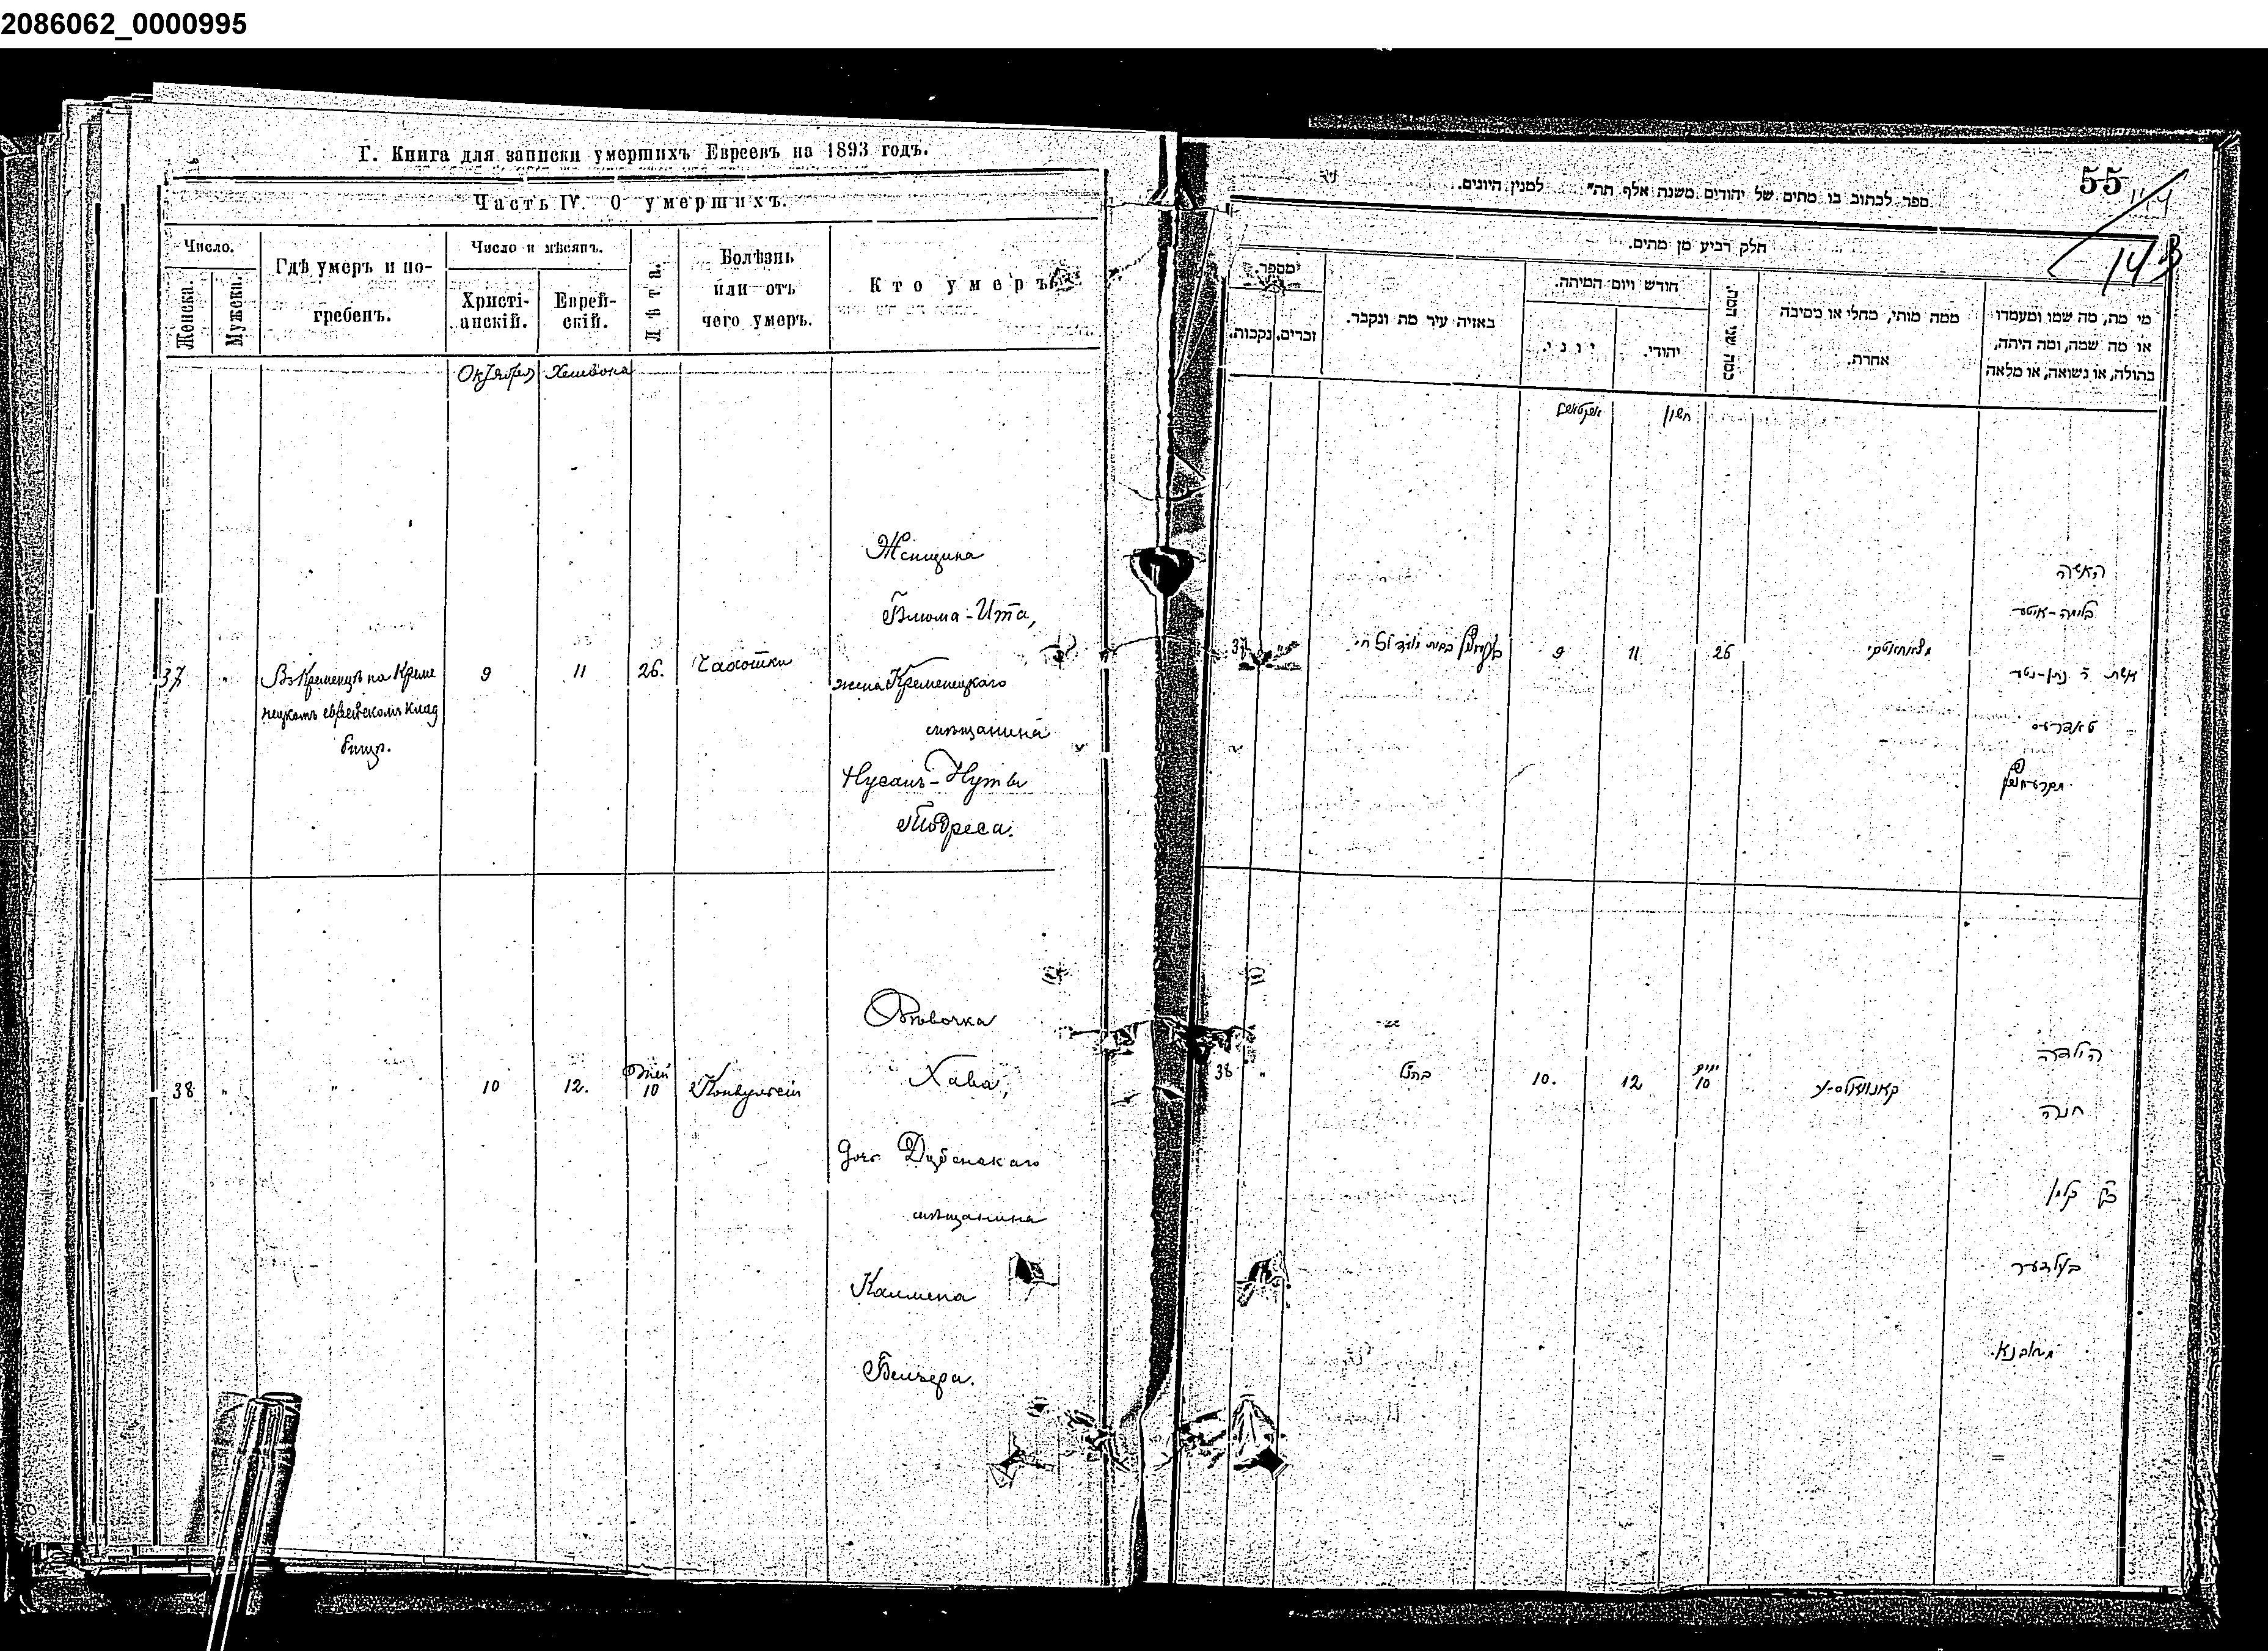 2086062_0000995
Г. Книга для записки умершихъ Евреевъ на 1893 годъ.
Часть IV. О умершихъ.
Число.
Женска.
Мужска.
Гдѣ умеръ и по-
гребенъ.
Число и мѣсяцъ.
Христі-
анскій.
Еврей-
скій.
Лѣта.
Болѣзнь
или отъ
чего умеръ.
Кто умеръ
Октября
Хешвона
37
"
Въ Кременцѣ на Креме
нецкомъ еврейскомъ клад
бищѣ.
9
11
26.
Чахотки
Женщина
Блюма-Ита,
жена Кременецкаго
мѣщанина
Нусанъ-Нуты
Тодреса.
38
"
"
10
12.
дней
10
Конвульсіи
Дѣвочка
Хава,
дочь Дубенскаго
мѣщанина
Калмена
Бельзера.
55
14
ספר לכתוב בו מתים של יהודים משנת אלף תת" למנין היונים.
חלק רביע מן מתים.
ימספר.
זכרים.
נקבות.
באיזה עיר מת ונקבר.
חודש ויום המיתה.
יוני.
יהודי.
כמה שני המת.
ממה מותו, מחלי או מסיבה
אחרת.
מי מת, מה שמו ומעמדו
או מה שמה, ומה היתה,
בתולה, או נשואה, או מלאה
חשון
37
9
11
26
האשה
בלומה-איטע
אשת ר נתן-נטע
טאדרעס
38
"
בהנ"ל
10.
12
ימים
10
הילדה
חוה